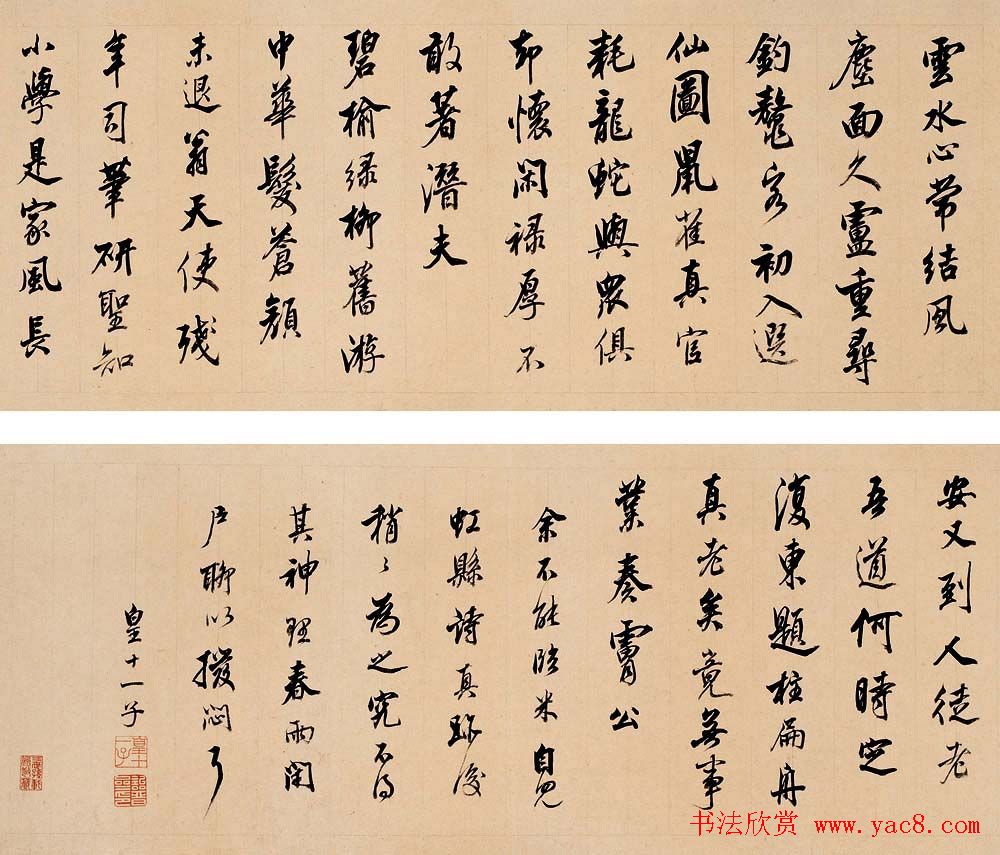 雲水心常結風
塵面久盧重尋
釣鼇客初入選
仙圖鼠雀真官
耗龍蛇與眾俱
却懷閑祿厚不
敢著潛夫
碧榆綠柳舊游
中華髮蒼顏
未退翁天使殘
年司筆研聖知
小學是家風長
安又到人徒老
吾道何時定
復東題柱扁舟
真老矣竟無事
業奏膚公
余不能臨米自見
虹縣詩真跡後
稍〻為之究不得
其神理春雨閉
戶聊以撥悶
皇十一子
书法欣赏 www.yac8.com